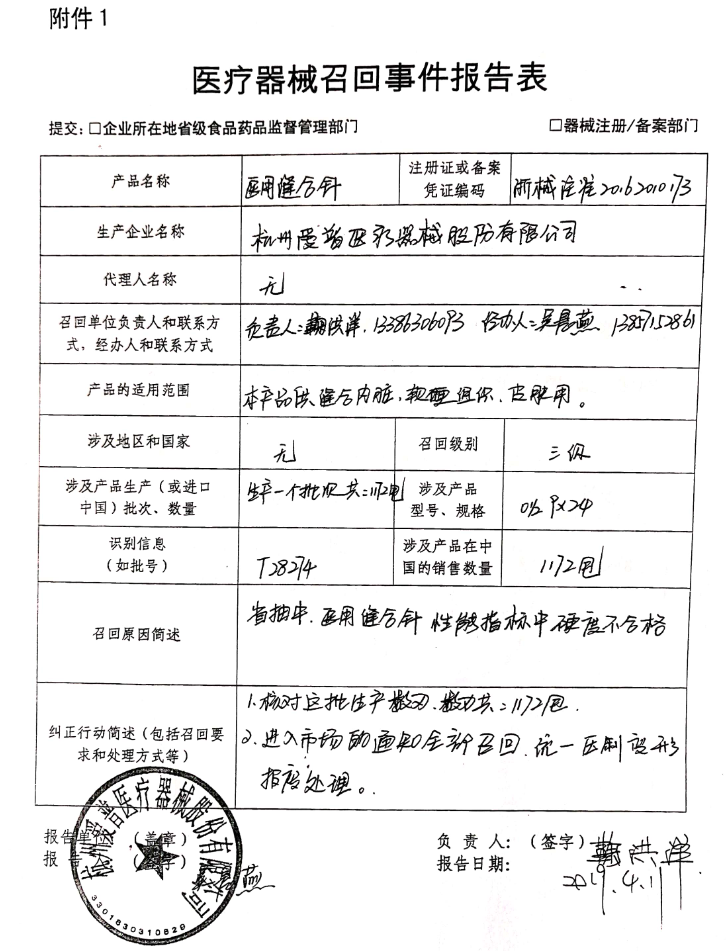 附件1
医疗器械召回事件报告表
提交：□企业所在地省级食品药品监督管理部门 □器械注册/备案部门
产品名称 医用缝合针 注册证或备案凭证编码 浙械注准20162010173
生产企业名称 杭州爱普医疗器械股份有限公司
代理人名称 无
召回单位负责人和联系方式，经办人和联系方式 负责人：洪洋，13386306093 经办人：吴燕 13857152861
产品的适用范围 本产品供缝合内脏，软组织、皮肤用。
涉及地区和国家 无 召回级别 三级
涉及产品生产（或进口中国）批次、数量 生产一个批次 共：1172包 涉及产品型号、规格 9×24
识别信息（如批号） T28274 涉及产品在中国的销售数量 1172包
召回原因简述 省抽中，医用缝合针 性能指标中硬度不合格
纠正行动简述（包括召回要求和处理方式等） 1.核对这批生产数，共：1172包.
2.进入市场的通知全部召回，统一压制变形
报废处理。
报告单位：（盖章） 负责人：（签字） 洪洋
报告（签字） 燕 报告日期： 2019.4.11
杭州爱普医疗器械股份有限公司
3301030310829